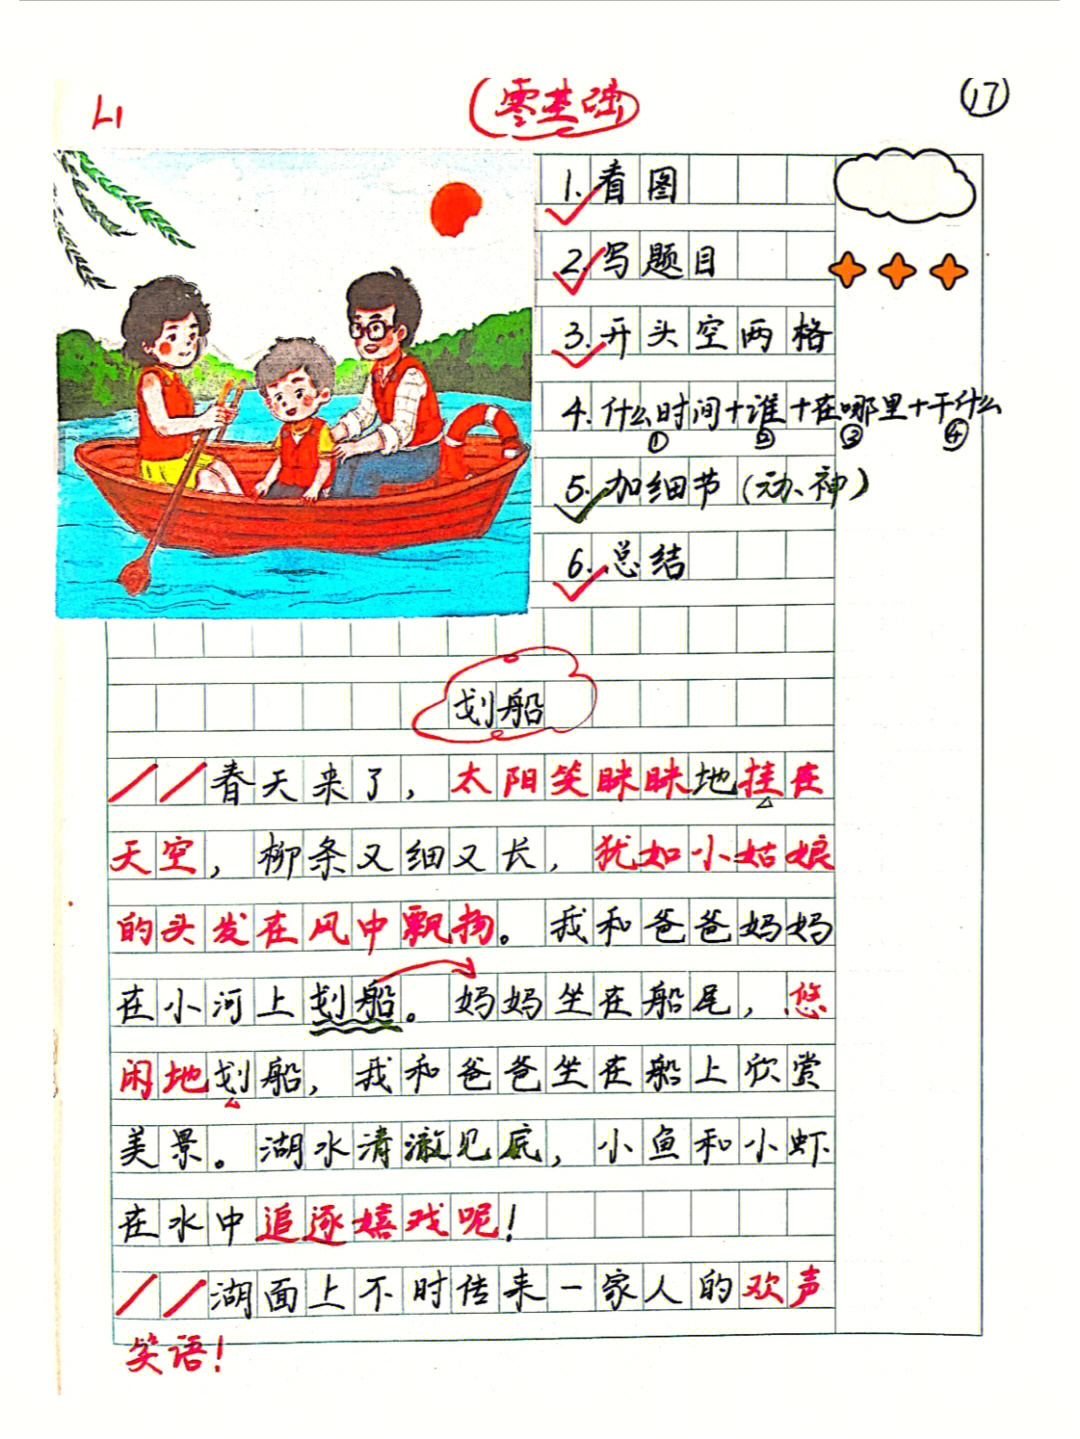 L1
(零基础)
17
1.看图
2.写题目
3.开头空两格
4.什么时间+谁+在哪里+干什么
① ② ③ ④
5.加细节(动、神)
6.总结
划船
春天来了,太阳笑眯眯地挂在
天空,柳条又细又长,犹如小姑娘
的头发在风中飘扬。我和爸爸妈妈
在小河上划船。妈妈坐在船尾,悠
闲地划船,我和爸爸坐在船上欣赏
美景。湖水清澈见底,小鱼和小虾
在水中追逐嬉戏呢!
湖面上不时传来一家人的欢声
笑语!